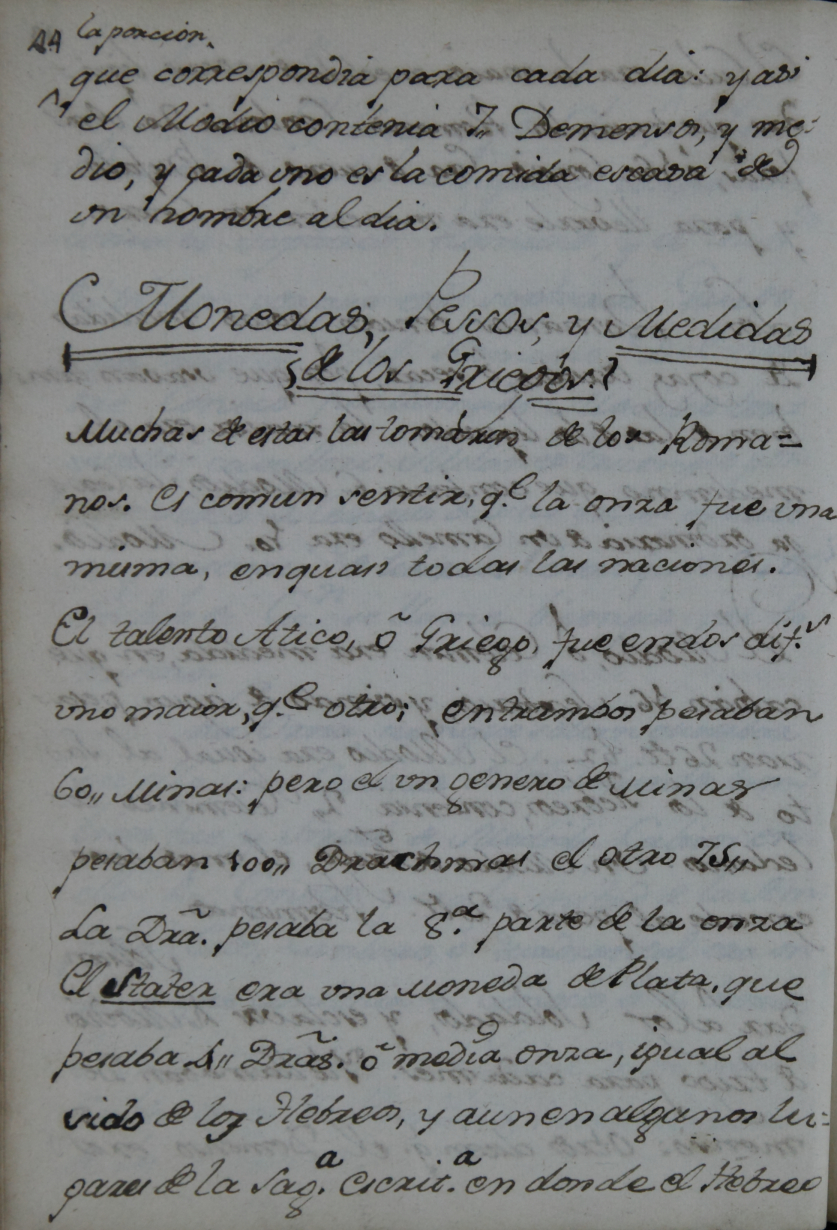 44 la porcion
que correspondia para cada dia: y asi
el Modio contenia 7,, Demensos, y me=
dio, y cada uno es la comida escasa de
un hombre al dia.
Monedas, Pessos, y Medidas
de los Griegos
Muchas de estas las tomaron de los Roma=
nos. Es comun sentir, q.e la onza fue una
misma, en quasi todas las naciones.
El talento Atico, ô Griego, fue en dos dif.s
uno maior, q.e otro; entrambos pesaban
60,, Minas: pero el un genero de Minas
pesaban 100,, Drachmas el otro 75,,
La Drã. pesaba la 8.a parte de la onza
El Stater era una Moneda de Plata, que
pesaba 4,, Drãs. ô media onza, igual al
siclo de los Hebreos, y aun en algunos lu=
gares de la Sag.a Escrit.a en donde el Hebreo